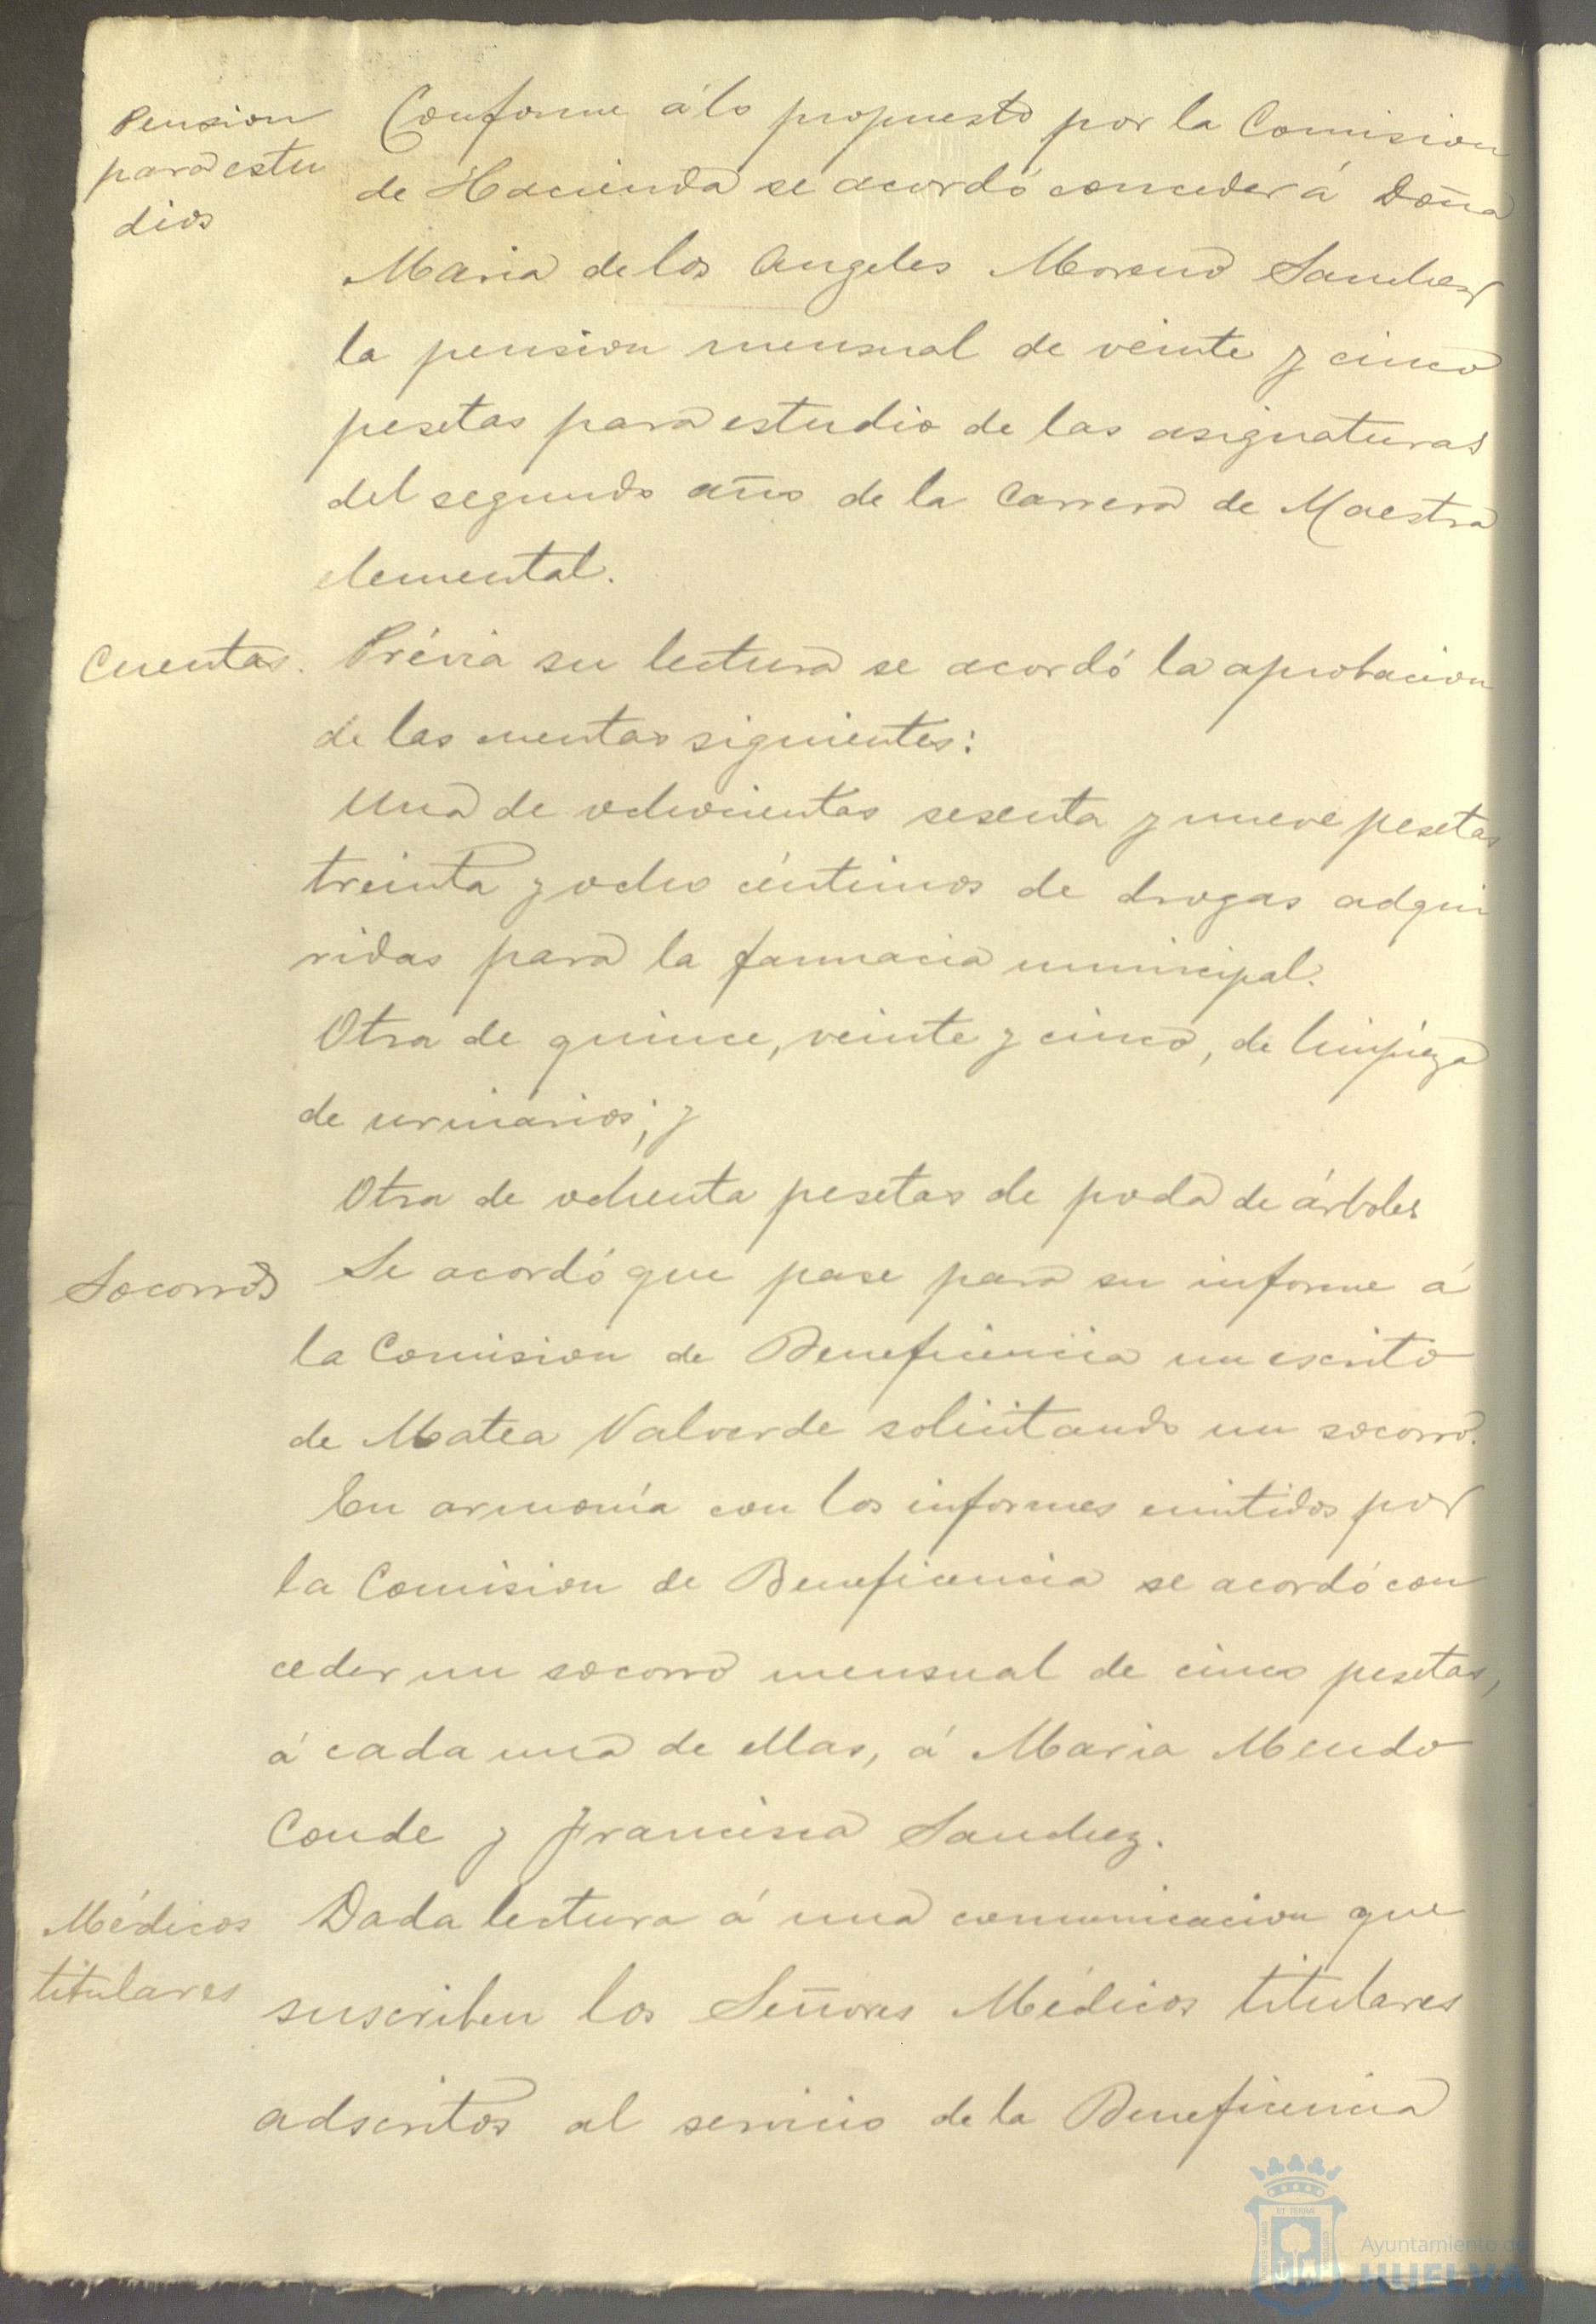 Pension
para estu
dios
Conforme á lo propuesto por la Comision
de Hacienda se acordó conceder á Doña
Maria de los Angeles Moreno Sanchez
la pension mensual de veinte y cinco
pesetas para estudio de las asignaturas
del segundo año de la Carrera de Maestra
elemental.
Cuentas.
Prévia su lectura se acordó la aprobacion
de las cuentas siguientes:
Una de ochocientas sesenta y nueve pesetas
treinta y ocho céntimos de drogas adqui
ridas para la farmacia municipal.
Otra de quince, veinte y cinco, de limpieza
de urinarios; y
Otra de ochenta pesetas de poda de árboles
Socorros
Se acordó que pase para su informe á
la Comision de Beneficencia un escrito
de Matea Valverde solicitando un socorro.
En armonía con los informes emitidos por
la Comision de Beneficencia se acordó con
ceder un socorro mensual de cinco pesetas,
á cada una de ellas, á Maria Mendo
Conde y Francisca Sanchez.
Médicos
titulares
Dada lectura á una comunicacion que
suscriben los Señores Médicos titulares
adscritos al servicio de la Beneficencia
Ayuntamiento de
HUELVA